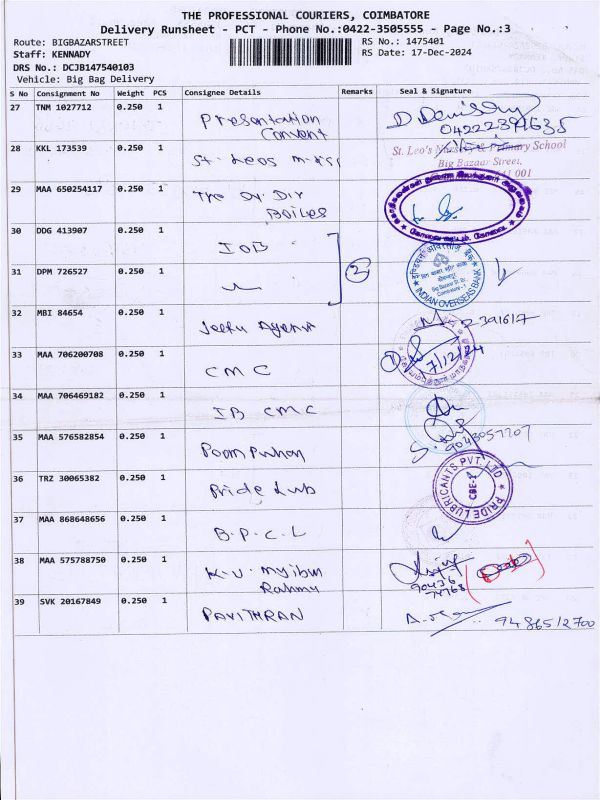 THE PROFESSIONAL COURIERS, COIMBATORE
Delivery Runsheet - PCT - Phone No.:0422-3505555 - Page No.:3
Route: BIGBAZARSTREET RS No.: 1475401
Staff: KENNADY RS Date: 17-Dec-2024
DRS No.: DCJB147540103
Vehicle: Big Bag Delivery
S No Consignment No Weight PCS Consignee Details Remarks Seal & Signature
27 TNM 1027712 0.250 1 Presentation
Convent 04222391635
28 KKL 173539 0.250 1 St. Leos
St. Leo's Nursery & Primary School
Big Bazaar Street,
29 MAA 650254117 0.250 1
30 DDG 413907 0.250 1 IOB
31 DPM 726527 0.250 1 2
INDIAN OVERSEAS BANK
32 MBI 84654 0.250 1 2391617
33 MAA 706200708 0.250 1 CMC
34 MAA 706469182 0.250 1 IB CMC
35 MAA 576582854 0.250 1 Poompuhar
36 TRZ 30065382 0.250 1 Pride Lub
PRIDE LUBRICANTS PVT. LTD
37 MAA 868648656 0.250 1 B.P.C.L
38 MAA 575788750 0.250 1 K.U.
39 SVK 20167849 0.250 1 PAVITHRAN 9486512700